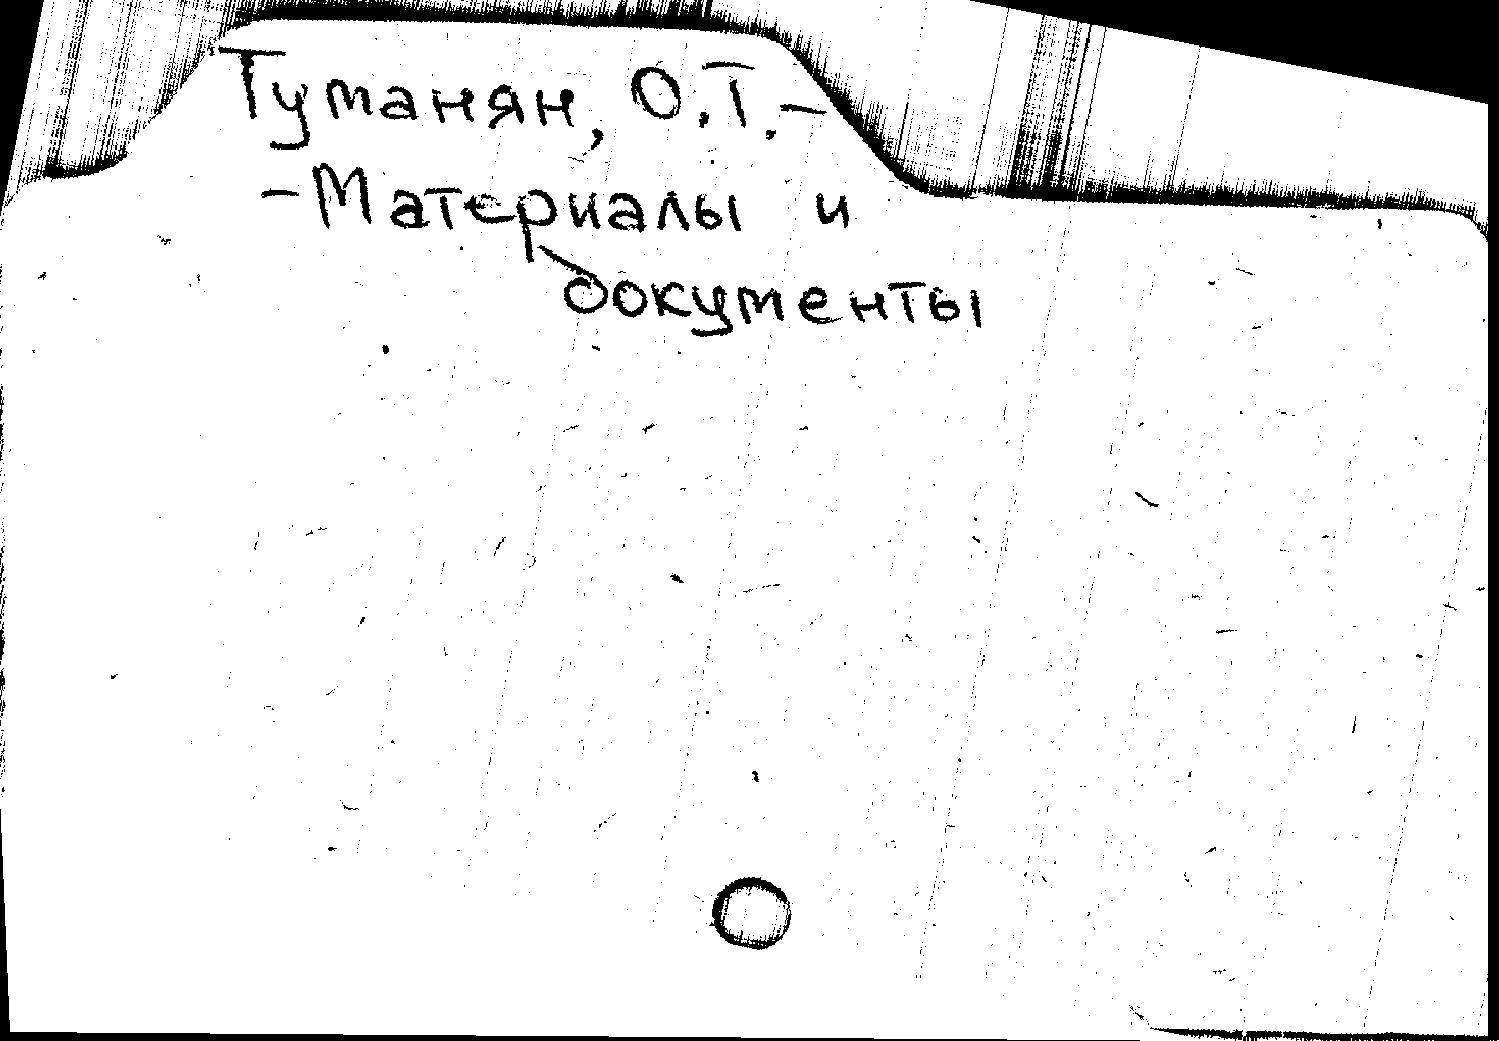 Туманян, О.Т.-
-Материалы и
документы